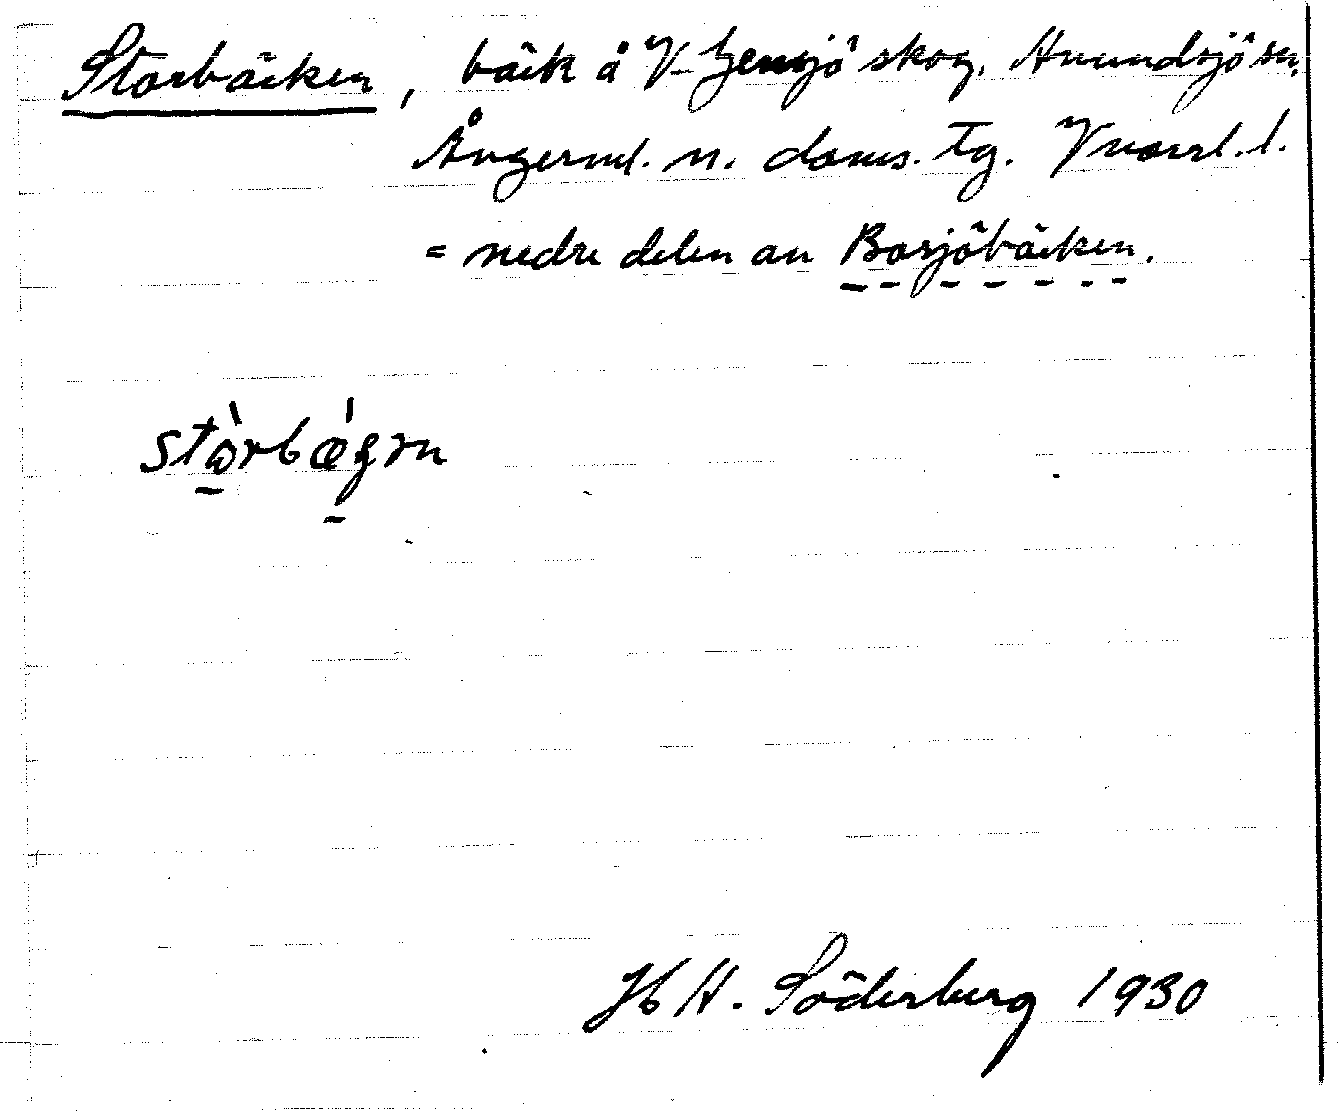 Storbäcken, bäck å V. Gensjö skog, Anundsjö sn,
Ångerml. n. doms. tg. Vnorrl. l.
= nedre delen av Borsjöbäcken.
H A. Söderberg 1930